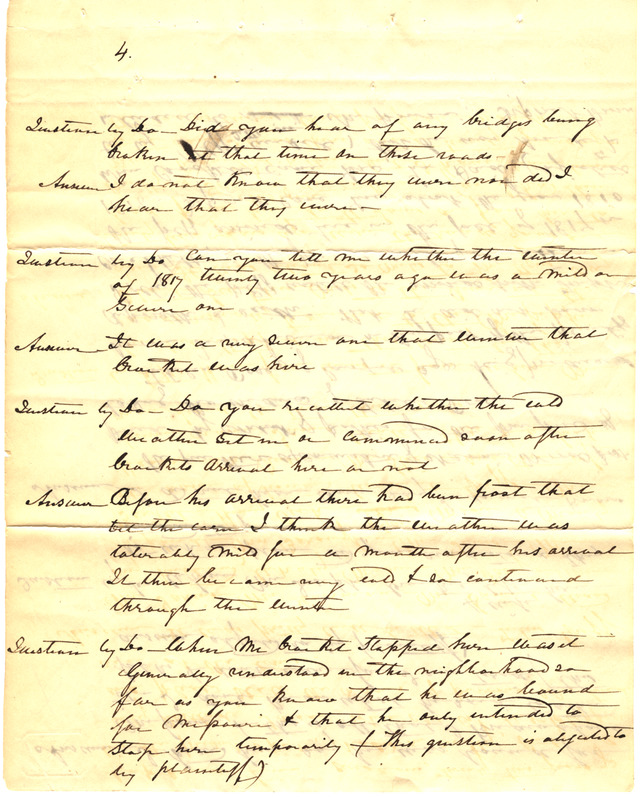 4.
Question by Do Did you hear of any bridges being
broken at that time on those roads
Answer I do not know that they were nor did I
hear that they were
Question by Do Can you tell me whether the winter
of 1817 twenty two years ago was a mild or
Severe one
Answer It was a very severe one that winter that
Crocket was here
Question by Do Do you recollect whether the cold
weather set in or commenced soon after
Crockets arrival here or not
Answer Before his arrival there had been frost that
bit the corn I think the weather was
tolerably mild for a month after his arrival
It then became very cold & so continued
through the winter
Question by Do When Mr Crocket Stopped here was it
Generally understood in the neighborhood so
far as you know that he was bound
for Missouri & that he only intended to
Stop here temporarily (This question is objected to
by plaintiff)